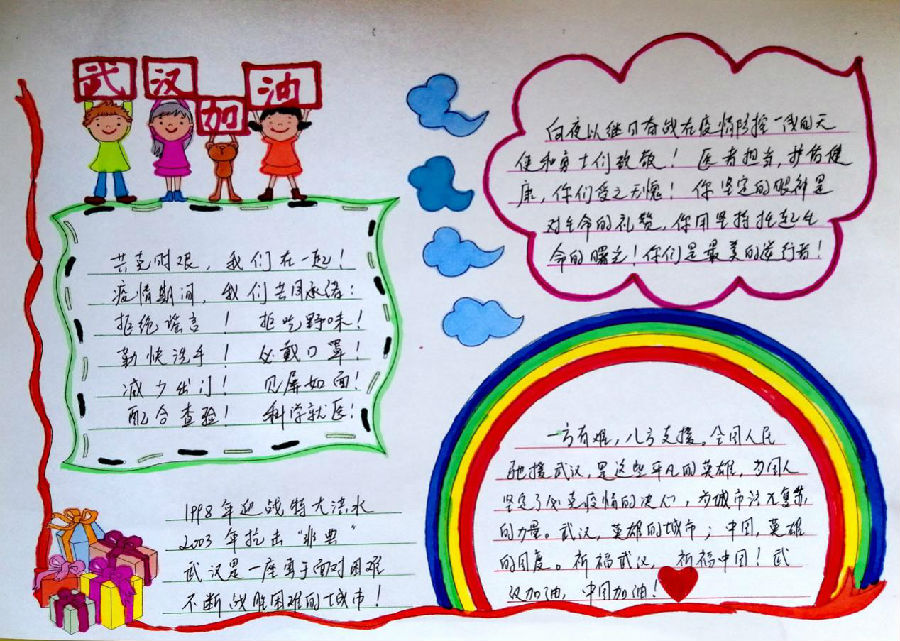 武汉加油
共克时艰，我们在一起！
疫情期间，我们共同承诺：
拒绝谣言！ 拒吃野味！
勤快洗手！ 必戴口罩！
减少出门！ 见屏如面！
配合查验！ 科学就医！
1998年迎战特大洪水
2003年抗击"非典"
武汉是一座勇于面对困难
不断战胜困难的城市！
向夜以继日奋战在疫情防控一线的天
使和勇士们致敬！医者担当，护佑健
康，你们受之无愧！你坚定的眼神是
对生命的礼赞，你用坚持托起生
命的曙光！你们是最美的逆行者！
一方有难，八方支援。全国人民
驰援武汉，是这些平凡的英雄，为国人
坚定了必克疫情的决心，为城市注无复苏
的力量。武汉，英雄的城市；中国，英雄
的国度。祈福武汉，祈福中国！武
汉加油，中国加油！